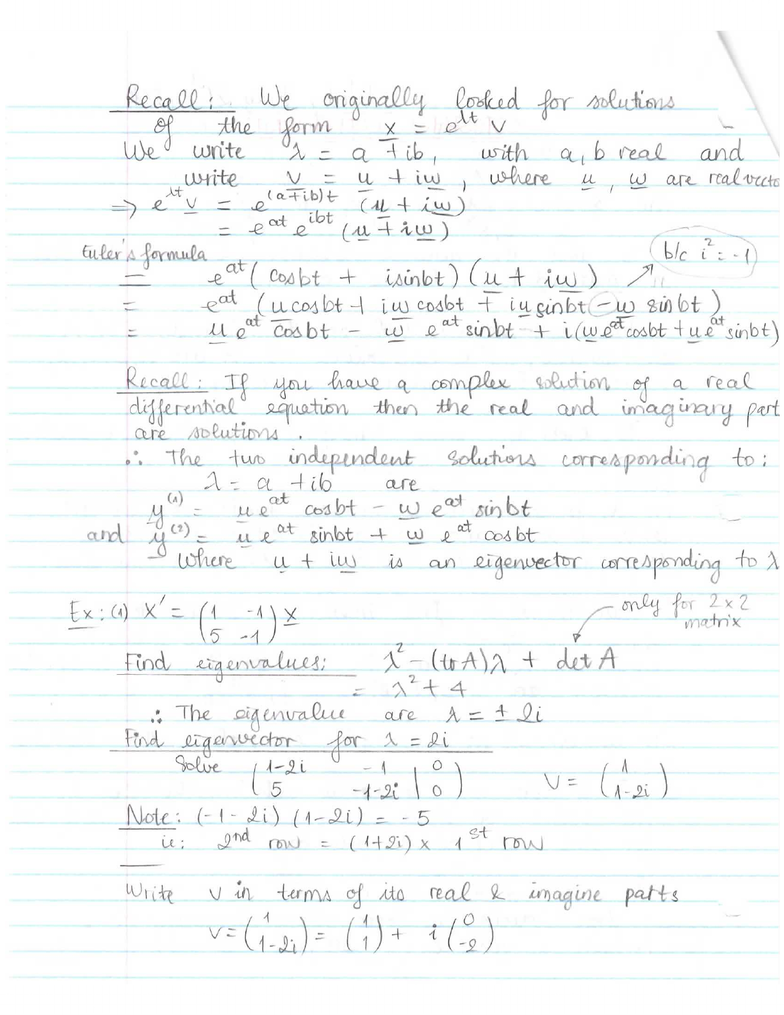 Recall: We originally looked for solutions
of the form x = e^λt v
We write λ = a + ib, with a, b real and
write v = u + iw, where u, w are real vecto
⇒ e^λt v = e^(a+ib)t (u + iw)
= e^at e^ibt (u + iw)
Euler's formula
b/c i² = -1
= e^at (cosbt + isinbt) (u + iw)
= e^at (u cosbt + iw cosbt + iu sinbt - w sinbt)
= u e^at cosbt - w e^at sinbt + i(w e^at cosbt + u e^at sinbt)
Recall: If you have a complex solution of a real
differential equation then the real and imaginary part
are solutions.
∴ The two independent solutions corresponding to:
λ = a + ib are
y^(1) = u e^at cosbt - w e^at sinbt
and y^(2) = u e^at sinbt + w e^at cosbt
Where u + iw is an eigenvector corresponding to λ
Ex: (1) x' = (1 -1; 5 -1) x
only for 2x2
matrix
Find eigenvalues: λ² - (tr A)λ + det A
= λ² + 4
∴ The eigenvalue are λ = ± 2i
Find eigenvector for λ = 2i
Solve (1-2i -1 | 0; 5 -1-2i | 0) v = (1; 1-2i)
Note: (-1-2i) (1-2i) = -5
ie: 2nd row = (1+2i) x 1st row
Write v in terms of its real & imagine parts
v = (1; 1-2i) = (1; 1) + i (0; -2)